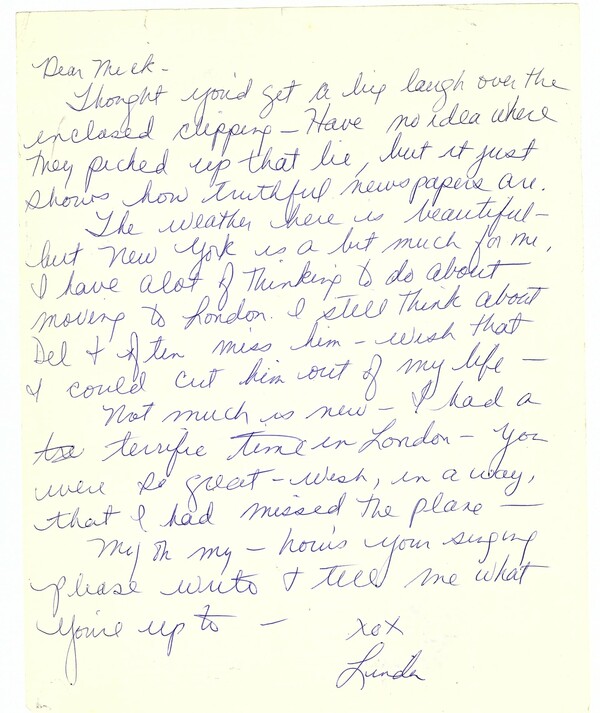 Dear Mick -
Thought you'd get a big laugh over the
inclosed clipping - Have no idea where
they picked up that lie, but it just
shows how truthful newspapers are.
The weather here is beautiful -
but New York is a bit much for me,
I have alot of thinking to do about
moving to London. I still think about
Del & often miss him - wish that
I could cut him out of my life -
Not much is new - I had a
terrific time in London - you
were so great - wish, in a way,
that I had missed the plane -
My oh my - how's your singing
please write & tell me what
you're up to -
xox
Linda